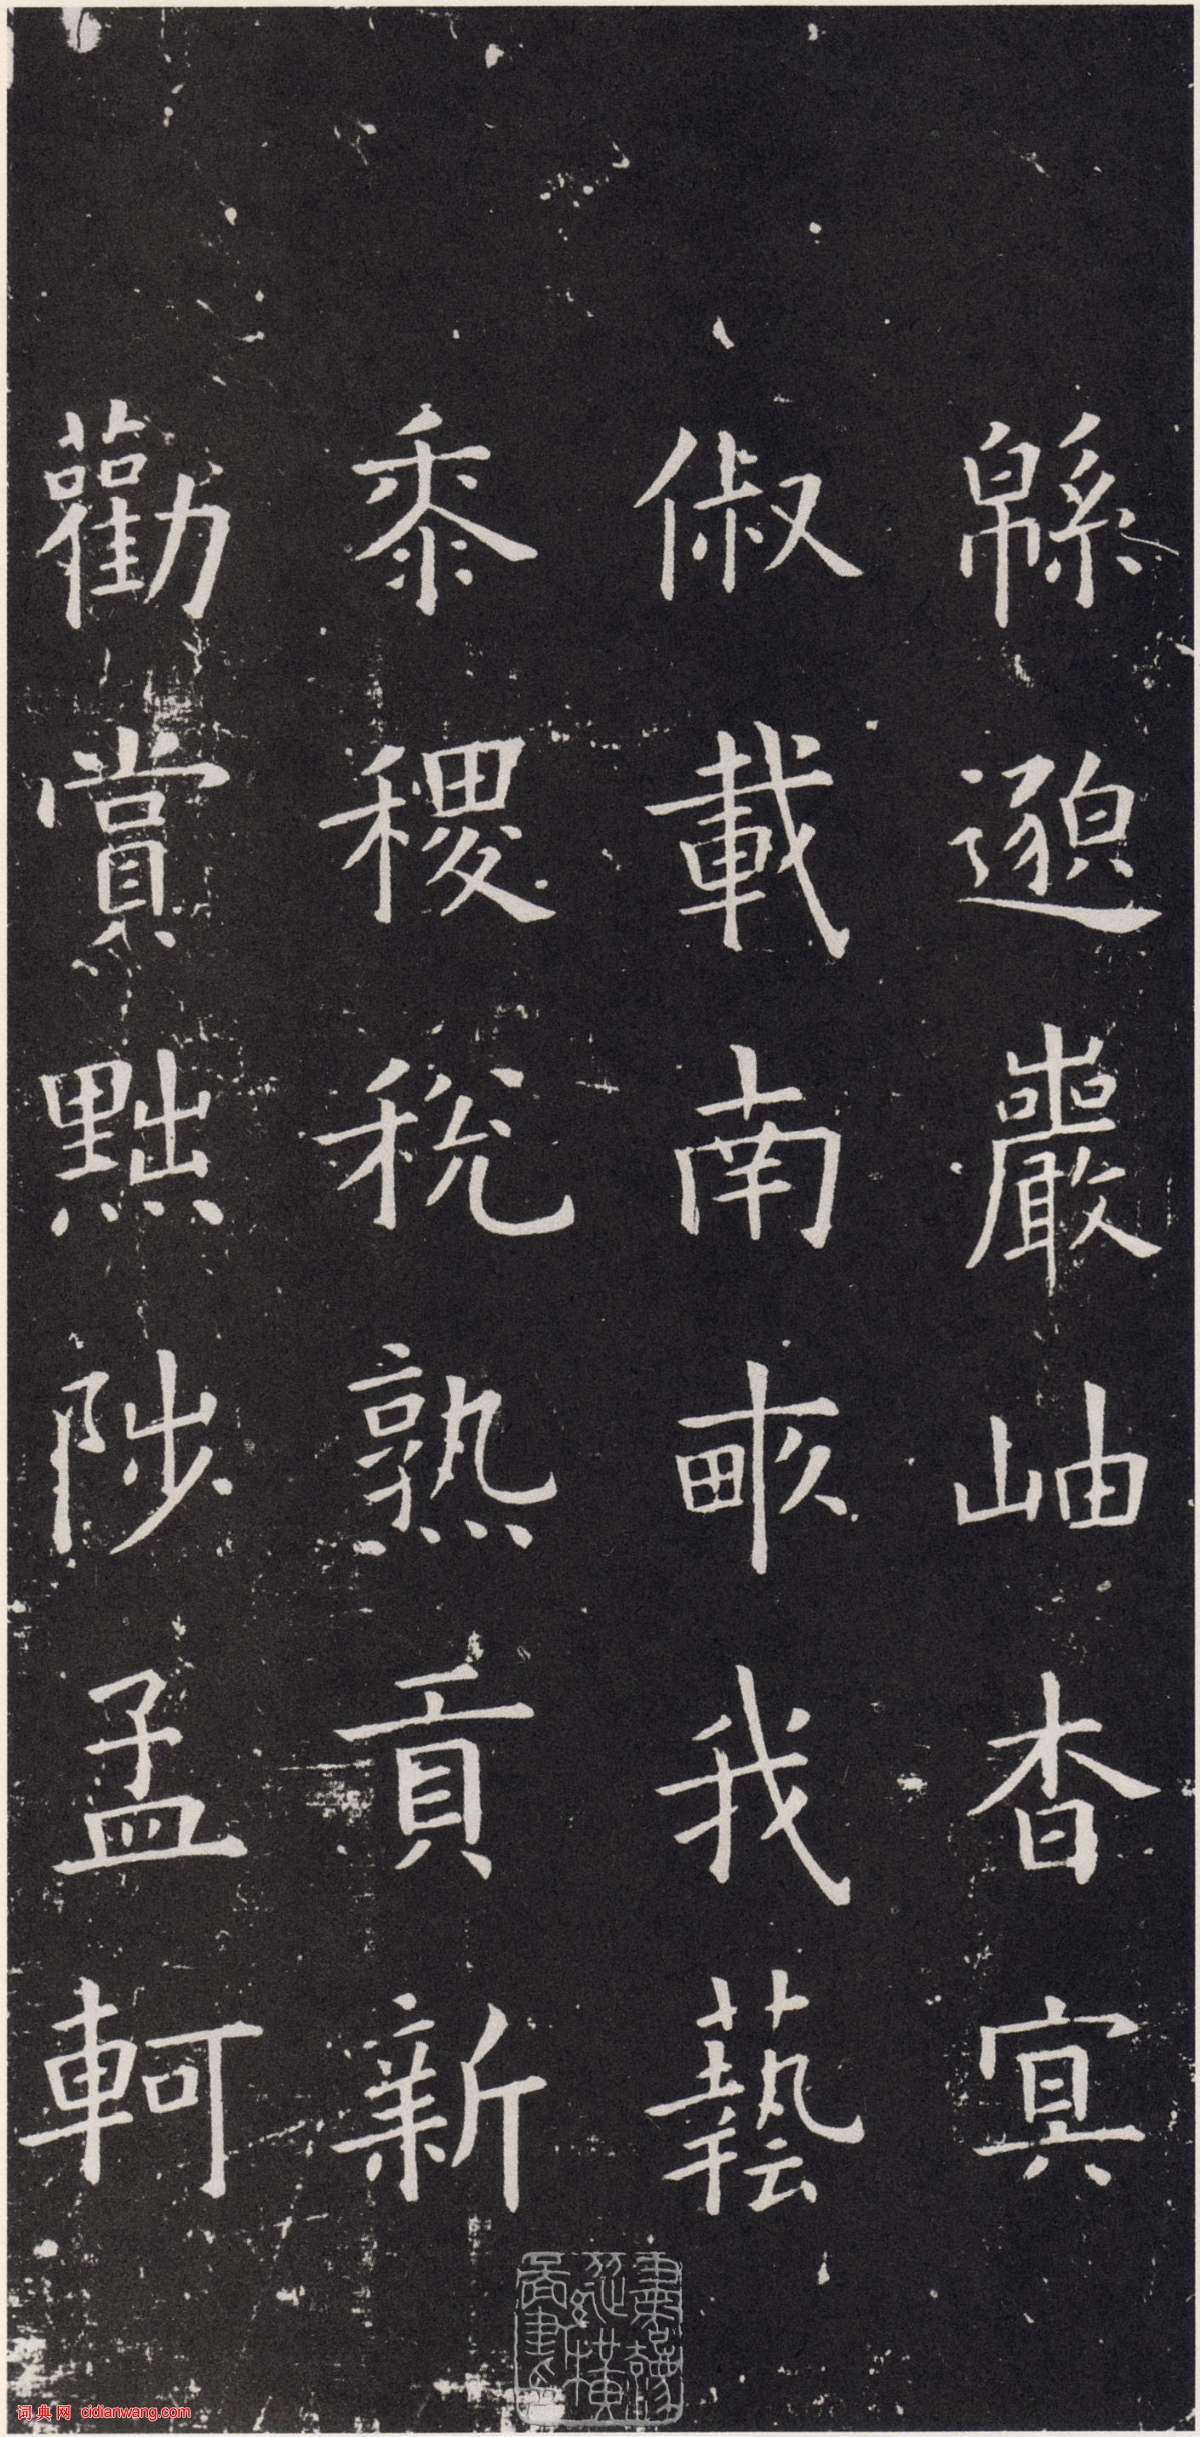 緜邈巖岫杳冥
俶載南畝我藝
黍稷稅熟貢新
勸賞黜陟孟軻
词典网 cidianwang.com